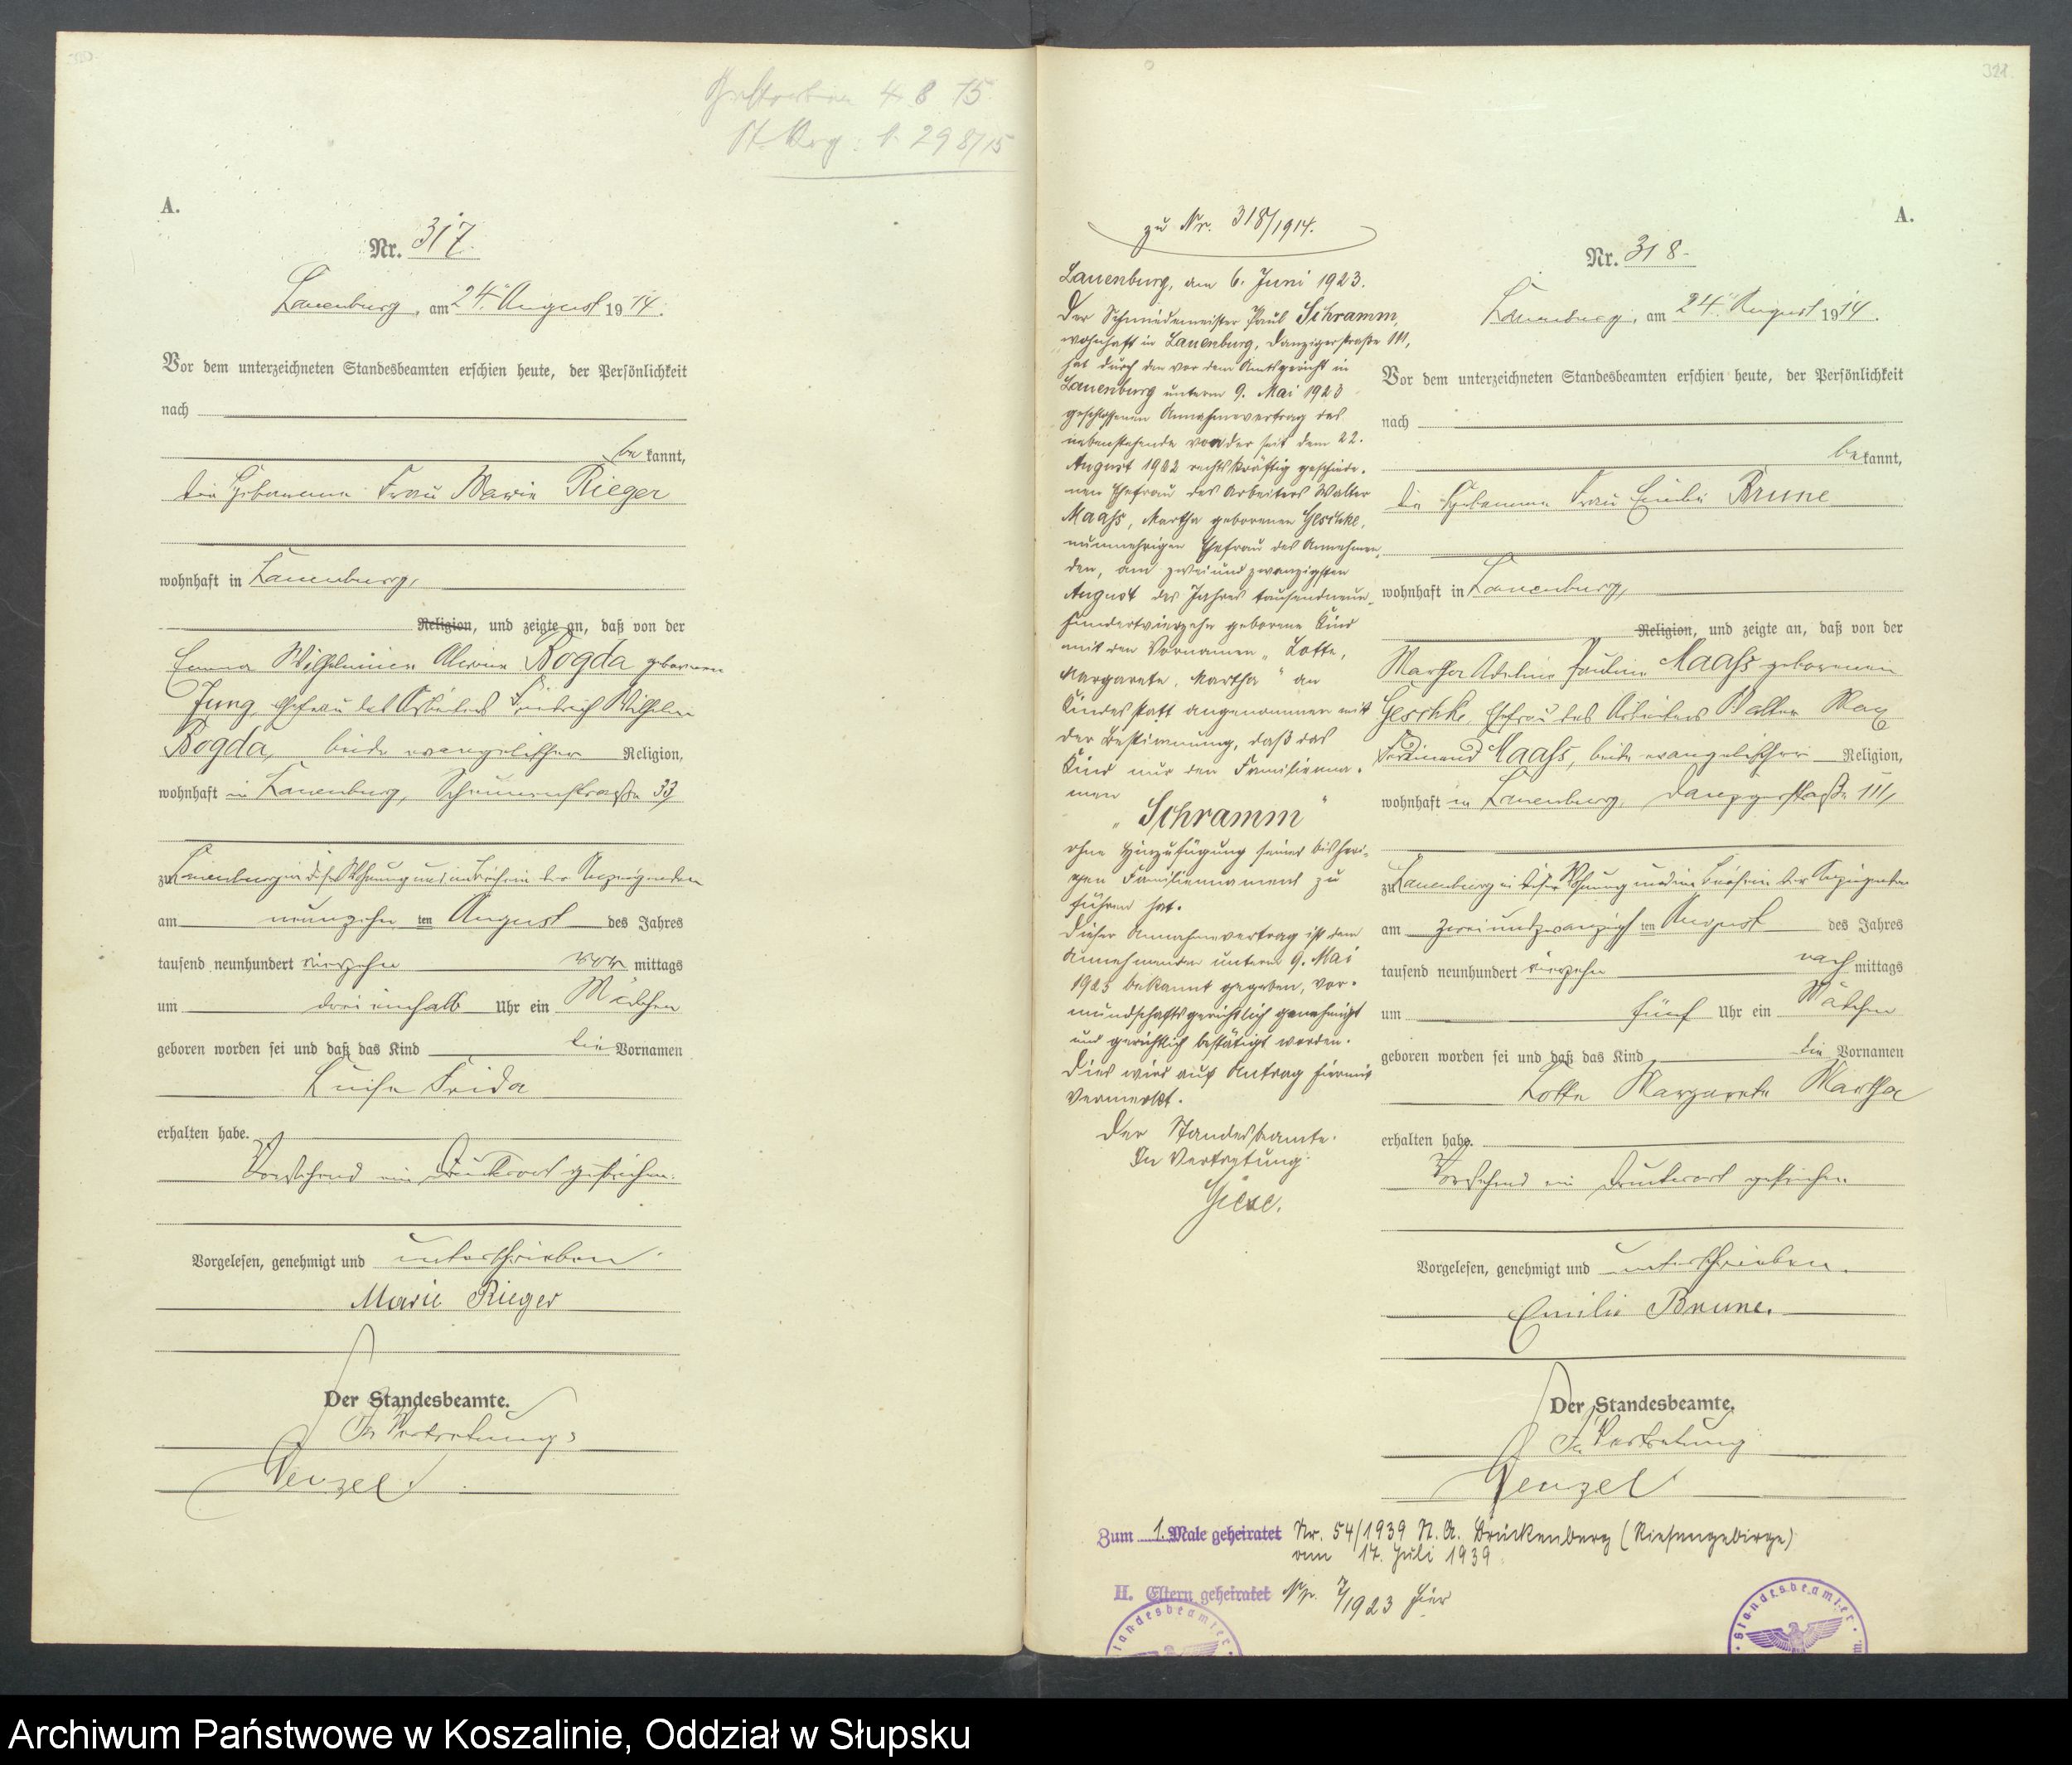 Gestorben 4.8.15
St. Reg: 298/15
A.
Nr. 317.
Lauenburg, am 24. August 1914.
Vor dem unterzeichneten Standesbeamten erschien heute, der Persönlichkeit
nach
be kannt,
die Hebamme Frau Marie Rieger
wohnhaft in Lauenburg,
Religion, und zeigte an, daß von der
Emma Wilhelmine Alwine Bogda geborenen
Jung, Ehefrau des Arbeiters Friedrich Wilhelm
Bogda, beide evangelischer Religion,
wohnhaft in Lauenburg, Scheunenstraße 33,
zu Lauenburg in dieser Wohnung und im Beisein der Anzeigenden
am neunzehn ten August des Jahres
tausend neunhundert vierzehn vor mittags
um drei einhalb Uhr ein Mädchen
geboren worden sei und daß das Kind die Vornamen
Luise Frida
erhalten habe.
Vorstehend ein Druckwort gestrichen.
Vorgelesen, genehmigt und unterschrieben.
Marie Rieger
Der Standesbeamte.
In Vertretung:
Wenzel
zu Nr. 318/1914.
Lauenburg, am 6. Juni 1923.
Der Schmiedemeister Paul Schramm,
wohnhaft in Lauenburg, Danzigerstraße 111,
hat durch den vor dem Amtsgericht in
Lauenburg unterm 9. Mai 1923
geschlossenen Annahmevertrag das
nebenstehende von der seit dem 22.
August 1922 rechtskräftig geschiede-
nen Ehefrau des Arbeiters Walter
Maaß, Martha geborenen Geschke,
nunmehrigen Ehefrau des Annehmen-
den, am zweiundzwanzigsten
August des Jahres tausendneun-
hundertvierzehn geborene Kind
mit den Vornamen „Lotte,
Margarete, Martha" an
Kindesstatt angenommen mit
der Bestimmung, daß das
Kind nur den Familienna-
men
„Schramm"
ohne Hinzufügung seines bisheri-
gen Familiennamens zu
führen hat.
Dieser Annahmevertrag ist dem
Annehmenden unterm 9. Mai
1923 bekannt gegeben, vor-
mundschaftsgerichtlich genehmigt
und gerichtlich bestätigt worden.
Dies wird auf Antrag hiermit
vermerkt.
Der Standesbeamte.
In Vertretung:
321.
A.
Nr. 318.
Lauenburg, am 24. August 1914.
Vor dem unterzeichneten Standesbeamten erschien heute, der Persönlichkeit
nach
be kannt,
die Hebamme Frau Emilie Brune
wohnhaft in Lauenburg,
Religion, und zeigte an, daß von der
Martha Adeline Pauline Maaß geborenen
Geschke, Ehefrau des Arbeiters Walter Max
Ferdinand Maaß, beide evangelischer Religion,
wohnhaft in Lauenburg, Danzigerstraße 111,
zu Lauenburg in dieser Wohnung und im Beisein der Anzeigenden
am zweiundzwanzigsten ten August des Jahres
tausend neunhundert vierzehn nach mittags
um fünf Uhr ein Mädchen
geboren worden sei und daß das Kind die Vornamen
Lotte Margarete Martha
erhalten habe.
Vorstehend ein Druckwort gestrichen.
Vorgelesen, genehmigt und unterschrieben.
Emilie Brune.
Der Standesbeamte.
In Vertretung
Wenzel
Zum 1. Male geheiratet Nr. 54/1939 St. A. Brückenberg (Riesengebirge)
am 17. Juli 1939
II. Eltern geheiratet Nr. 7/1923 hier
Standesbeamter
Standesbeamter
Archiwum Państwowe w Koszalinie, Oddział w Słupsku